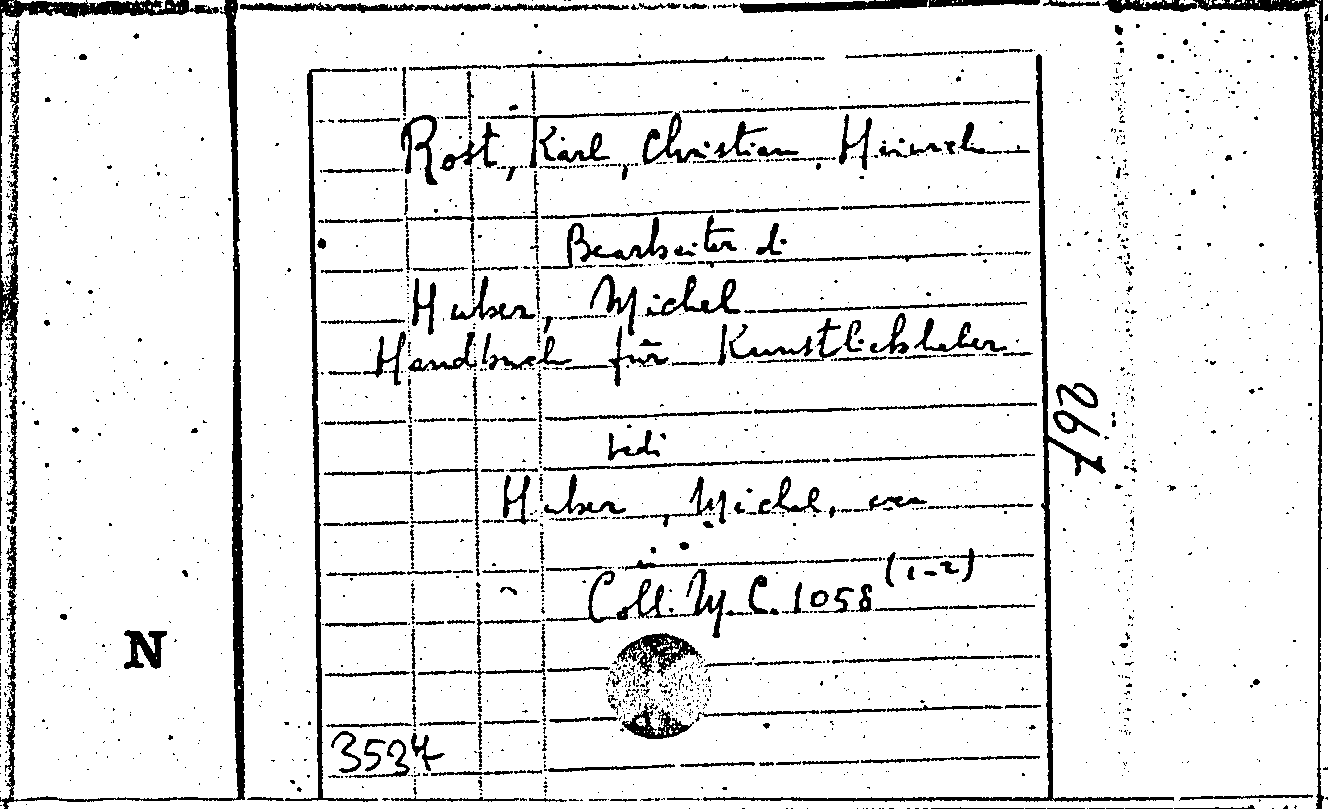 Rost, Karl, Christian, Heinrich
Bearbeiter d.
Huber, Michel
Handbuch für Kunstliebhaber
vedi
Huber, Michel,
Coll. M. C. 1058 (1-2)
N
3534